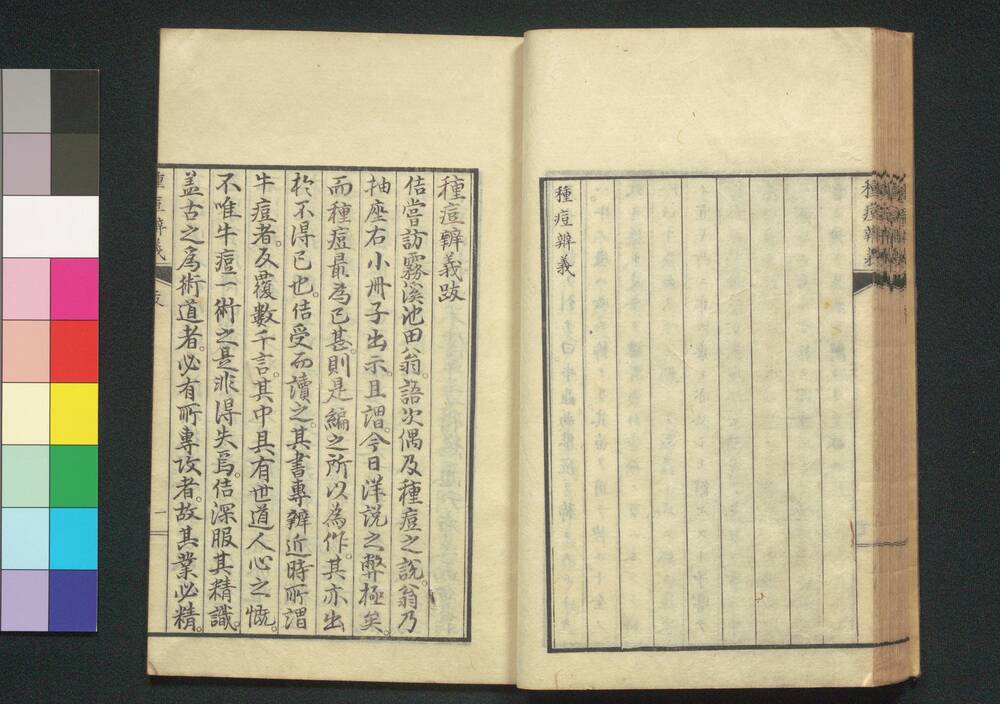 種痘辨義
種痘辨義
種痘辨義跋
佶嘗訪霧溪池田翁。語次偶及種痘之說。翁乃
抽座右小冊子出示。且謂。今日洋說之弊極矣。
而種痘最為已甚。則是編之所以為作。其亦出
於不得已也。佶受而讀之。其書專辨近時所謂
牛痘者。反覆數千言。其中具有世道人心之慨。
不唯牛痘一術之是非得失焉。佶深服其精識。
蓋古之為術道者。必有所專攻者。故其業必精。
種痘辨義
跋
一